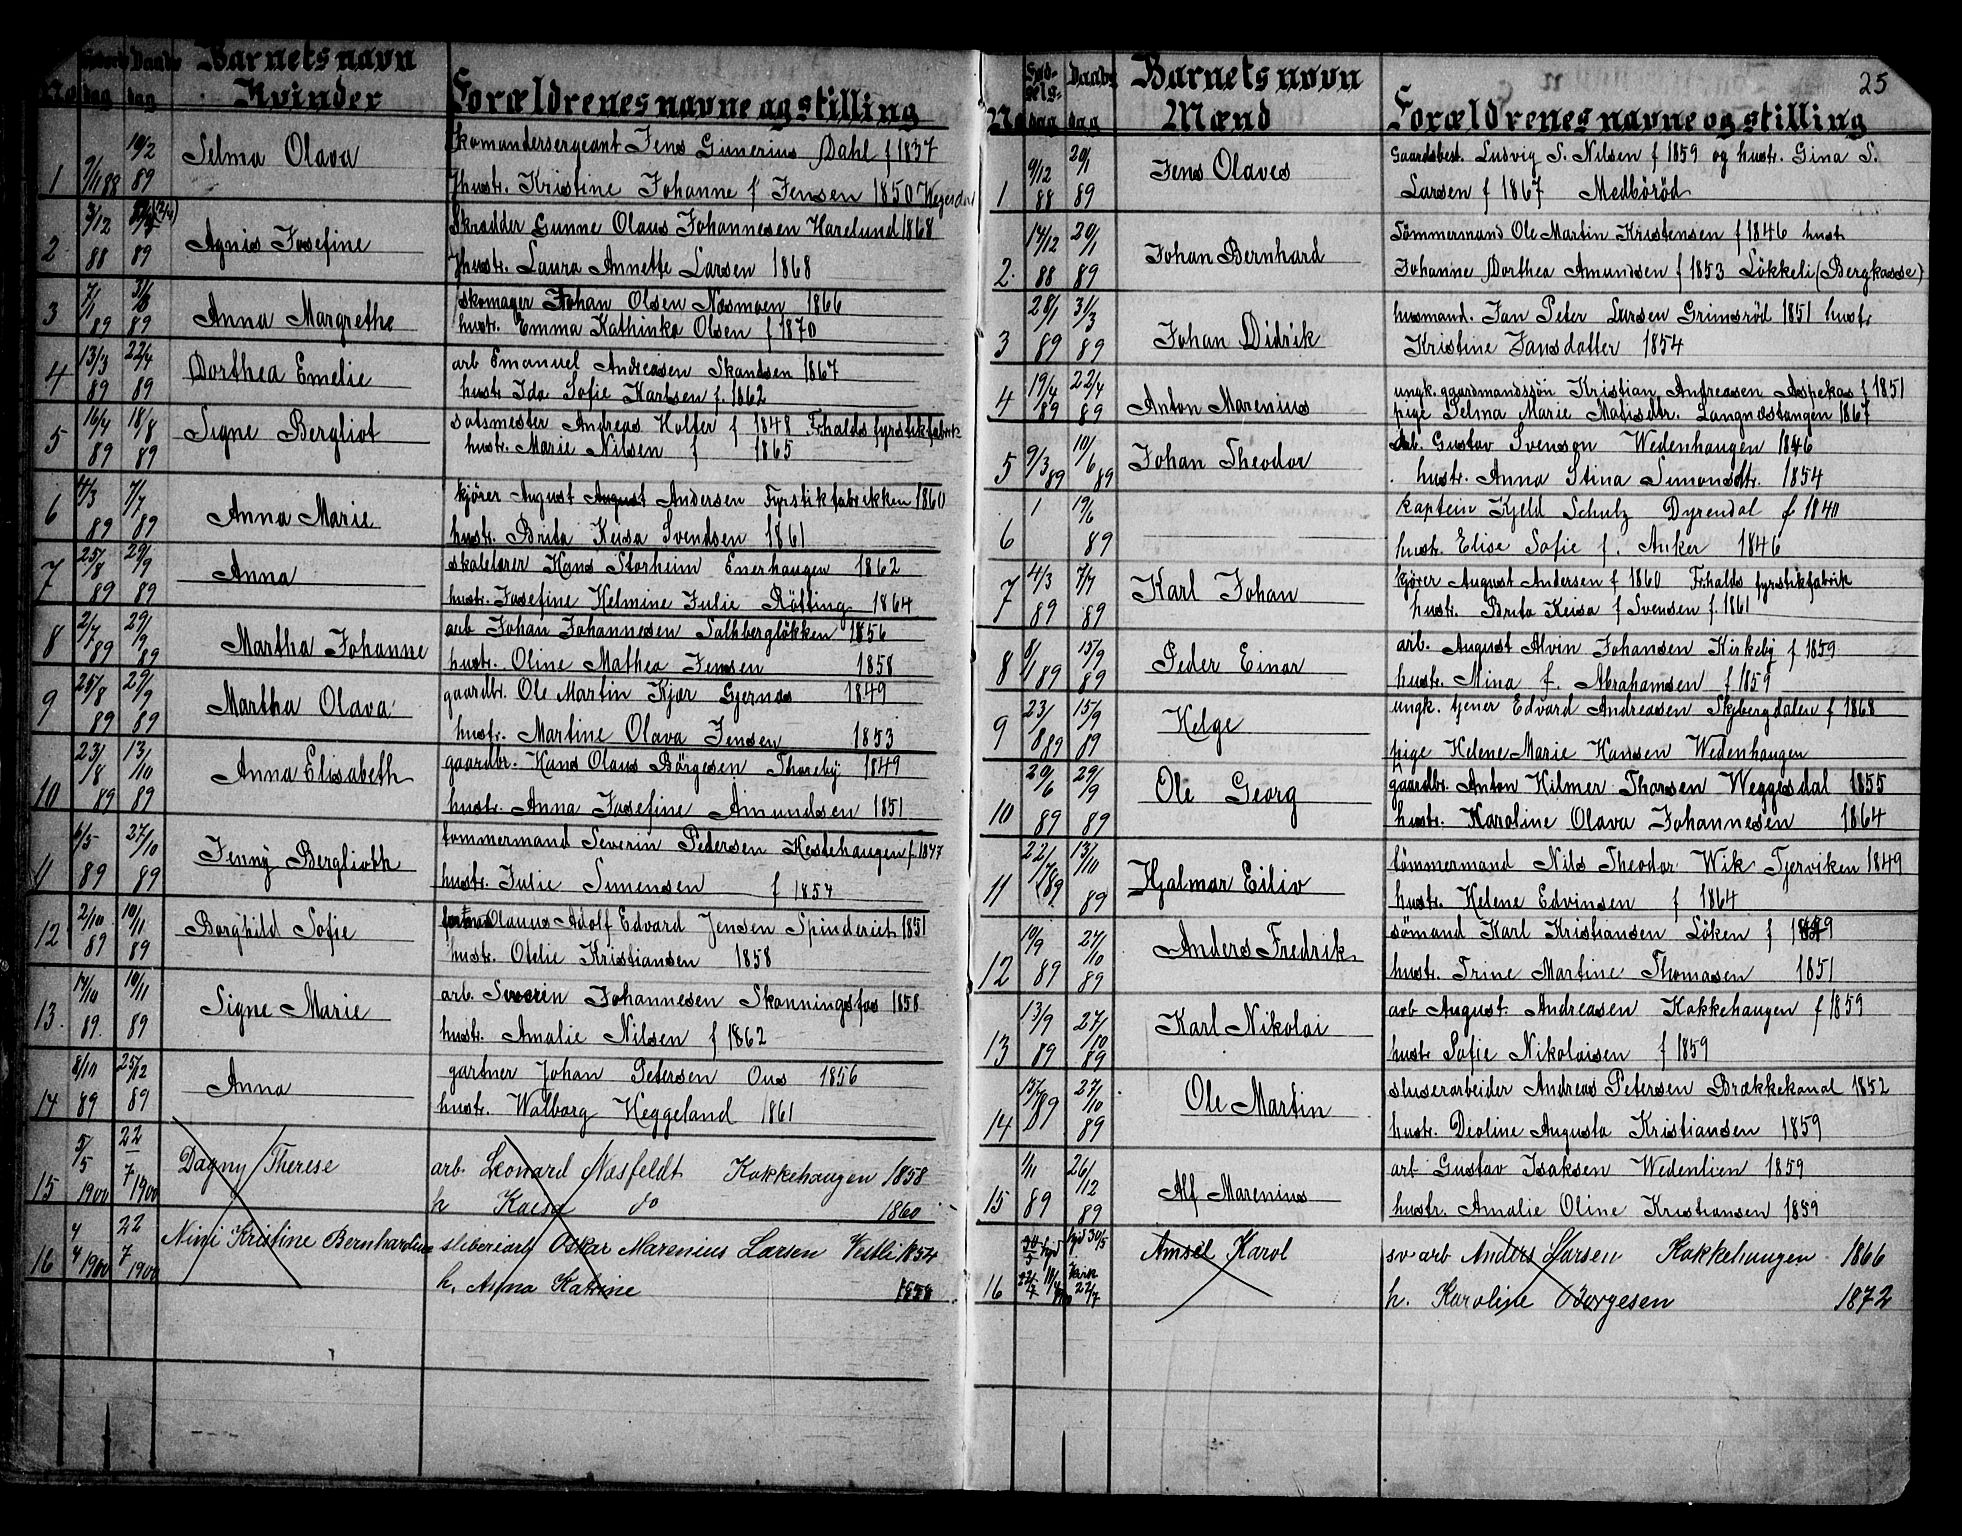 Barnets navn
Kvinder
No dag Daabs dag
Forældrenes navne og stilling
1 9/11 88 10/2 89 Selma Olava
skomandersergeant Jens Gunerius Dahl f 1837
hustr. Kristine Johanne f Jensen 1850 Wegesdal
2 3/12 88 89 Agnis Josefine
Skrædder Gunne Olaus Johannesen Harelund 1868
Hustr. Laura Annette Larsen 1868
3 7/1 89 31/3 89 Anna Margrethe
skomager Johan Olsen Næsmoen 1866
hustr. Emma Kathinka Olsen f 1870
4 13/3 89 22/4 89 Dorthea Emelie
arb Emanuel Andreasen Skandsen 1867
hustr Ida Sofie Karlsen f. 1862
5 16/4 89 18/8 89 Signe Bergliot
salsmester Andreas Holter f 1848 Frhalds fyrstikfabrik
hustr. Marie Nilsen f 1865
6 4/3 89 7/7 89 Anna Marie
kjører August August Andersen Fyrstikfabrikken 1860
hustr. Brita Keisa Svendsen 1861
7 25/8 89 29/9 89 Anna
skolelærer Hans Storheim Enerhaugen 1862
hustr. Josefine Helmine Julie Rötting 1864
8 2/7 89 29/9 89 Martha Johanne
arb Johan Johannesen Solhberglökken 1856
hustr. Oline Mathea Jensen 1858
9 25/8 89 29/9 89 Martha Olava
gaardbr. Ole Martin Kjær Gjernæs 1849
hustr. Martine Olava Jensen 1853
10 23/8 89 13/10 89 Anna Elisabeth
gaardbr. Hans Olaus Börgesen Thoreby 1849
hustr. Anna Josefine Amundsen 1851
11 6/5 89 27/10 89 Jenny Berglioth
tömmermand Severin Pedersen Hestehaugen f. 1847
hustr. Julie Simensen f 1854
12 2/10 89 10/11 89 Borghild Sofie
Olaus Adolf Edvard Jensen Spinderiet 1851
hustr. Otelie Kristiansen 1858
13. 17/10 89. 10/11 89 Signe Marie
arb. Severin Johannesen Skonningsfos 1858
hustr. Amalie Nilsen f 1862
14 8/10 89 25/12 89 Anna
gartner Johan Petersen Ous 1856
hustr. Walborg Heggeland 1861
15 5/5 1900 22/7 1900 Dagny Therese
arb. Leonard Næsfeldt Kokkehaugen 1858
h Kaisa do 1860
16 4/4 1900 22/7 1900 Nini Kristine Bernhardine
sliberiarb Oskar Marenius Larsen Vestli 1854
h. Anna Katrine 1858
25
No Fødselsdag Daabsdag
Barnets navn
Mænd
Forældrenes navne og stilling
1 9/12 88 20/1 89 Jens Olaves
Gaardsbest. Ludvig S. Nilsen f 1859 og hustr. Gina S.
Larsen f 1867 Medböröd
2. 14/12 88 20/1 89 Johan Bernhard
Tömmermand Ole Martin Kristensen f 1846 hustr
Johanne Dorthea Amundsen f 1853 Lökkeli (Bergkasse)
3 28/1 89 31/3 89 Johan Didrik
husmand. Jan Peter Larsen Grimsröd 1851 hustr
Kristine Jansdatter 1854
4 19/4 89 22/4 89 Anton Marenius
ungk. gaardmandssön Kristian Andreasen Aspekas f 1851
pige Selma Marie Matisdtr. Langnæstangen 1867
5 9/3 89 10/6 89 Johan Theodor
arb. Gustav Svenson Wedenhaugen 1846
hustr. Anna Stina Simonsdtr. 1854
6 1 19/6 89
kaptein Kjeld Schulz Dyrendal f 1840
hustr. Elise Sofie f. Anker 1846
7 4/3 89 7/7 89 Karl Johan
kjörer August Andersen f 1860 Frhalds fyrstikfabrik
hustr. Brita Keisa f Svensen f. 1861
8 8/1 89 15/9 89 Peder Einar
arb. August Alvin Johansen Kirkeby f 1859
hustr. Mina f. Abrahamsen f 1859
9 23/8 89 15/9 89 Helge
ungk. tjener Edvard Andreasen Skybergdalen f 1868
pige Helene Marie Hansen Wedenhaugen
10 20/6 89 29/9 89 Ole Georg
gaardbr. Anton Hilmer Thorsen Weggesdal 1855
hustr. Karoline Olava Johannesen 1864
11 22/7 89 13/10 89 Hjalmar Eiliv
tömmermand Nils Theodor Wik Tjerviken 1849
hustr. Helene Edvinsen f 1864
12 10/9 89 27/10 89 Anders Fredrik
sömand Karl Kristiansen Löken f 1849
hustr. Trine Martine Thomasen 1851
13 13/9 89 27/10 89 Karl Nikolai
arb August. Andreasen Kokkehaugen f 1859
hustr Sofie Nikolaisen f 1859
14 15/7 89 27/10 89 Ole Martin
sluserarbeider Andreas Petersen Brækkekanal 1852
hustr. Deoline Augusta Kristiansen 1859
15 1/11 89 26/12 89 Alf Marenius
arb Gustav Isaksen Wedenlien 1859
hustr. Amalie Oline Kristiansen 1859
16 hjd 30/5 kirk 22/7 Amsel Karol
sv arb Anders Larsen Kokkehaugen 1866
h. Karoline Borgesen 1872